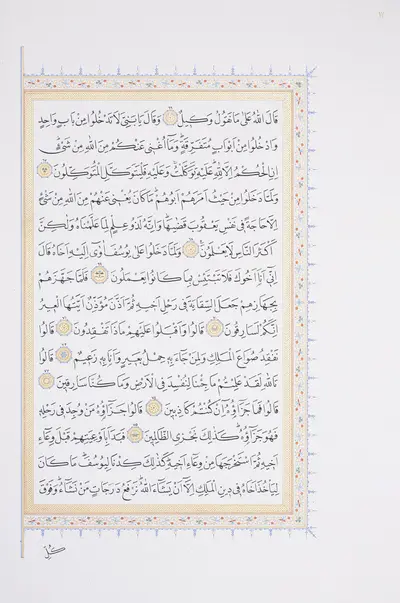 قَالَ اللّٰهُ عَلٰى مَا نَقُولُ وَكِيلٌ وَقَالَ يَا بَنِيَّ لَا تَدْخُلُوا مِنْ بَابٍ وَاحِدٍ
وَادْخُلُوا مِنْ اَبْوَابٍ مُتَفَرِّقَةٍ وَمَا اُغْنِي عَنْكُمْ مِنَ اللّٰهِ مِنْ شَيْءٍ
اِنِ الْحُكْمُ اِلَّا لِلّٰهِ عَلَيْهِ تَوَكَّلْتُ وَعَلَيْهِ فَلْيَتَوَكَّلِ الْمُتَوَكِّلُونَ
وَلَمَّا دَخَلُوا مِنْ حَيْثُ اَمَرَهُمْ اَبُوهُمْ مَا كَانَ يُغْنِي عَنْهُمْ مِنَ اللّٰهِ مِنْ شَيْءٍ
اِلَّا حَاجَةً فِي نَفْسِ يَعْقُوبَ قَضٰيهَا وَاِنَّهُ لَذُو عِلْمٍ لِمَا عَلَّمْنَاهُ وَلٰكِنَّ
اَكْثَرَ النَّاسِ لَا يَعْلَمُونَ وَلَمَّا دَخَلُوا عَلٰى يُوسُفَ اٰوٰى اِلَيْهِ اَخَاهُ قَالَ
اِنِّي اَنَا اَخُوكَ فَلَا تَبْتَئِسْ بِمَا كَانُوا يَعْمَلُونَ فَلَمَّا جَهَّزَهُمْ
بِجَهَازِهِمْ جَعَلَ السِّقَايَةَ فِي رَحْلِ اَخِيهِ ثُمَّ اَذَّنَ مُؤَذِّنٌ اَيَّتُهَا الْعِيرُ
اِنَّكُمْ لَسَارِقُونَ قَالُوا وَاَقْبَلُوا عَلَيْهِمْ مَاذَا تَفْقِدُونَ قَالُوا
نَفْقِدُ صُوَاعَ الْمَلِكِ وَلِمَنْ جَاءَ بِهِ حِمْلُ بَعِيرٍ وَاَنَا بِهِ زَعِيمٌ قَالُوا
تَاللّٰهِ لَقَدْ عَلِمْتُمْ مَا جِئْنَا لِنُفْسِدَ فِي الْاَرْضِ وَمَا كُنَّا سَارِقِينَ
قَالُوا فَمَا جَزَاؤُهُ اِنْ كُنْتُمْ كَاذِبِينَ قَالُوا جَزَاؤُهُ مَنْ وُجِدَ فِي رَحْلِهِ
فَهُوَ جَزَاؤُهُ كَذٰلِكَ نَجْزِي الظَّالِمِينَ فَبَدَاَ بِاَوْعِيَتِهِمْ قَبْلَ وِعَاءِ
اَخِيهِ ثُمَّ اسْتَخْرَجَهَا مِنْ وِعَاءِ اَخِيهِ كَذٰلِكَ كِدْنَا لِيُوسُفَ مَا كَانَ
لِيَاْخُذَ اَخَاهُ فِي دِينِ الْمَلِكِ اِلَّا اَنْ يَشَاءَ اللّٰهُ نَرْفَعُ دَرَجَاتٍ مَنْ نَشَاءُ وَفَوْقَ
كُلِّ